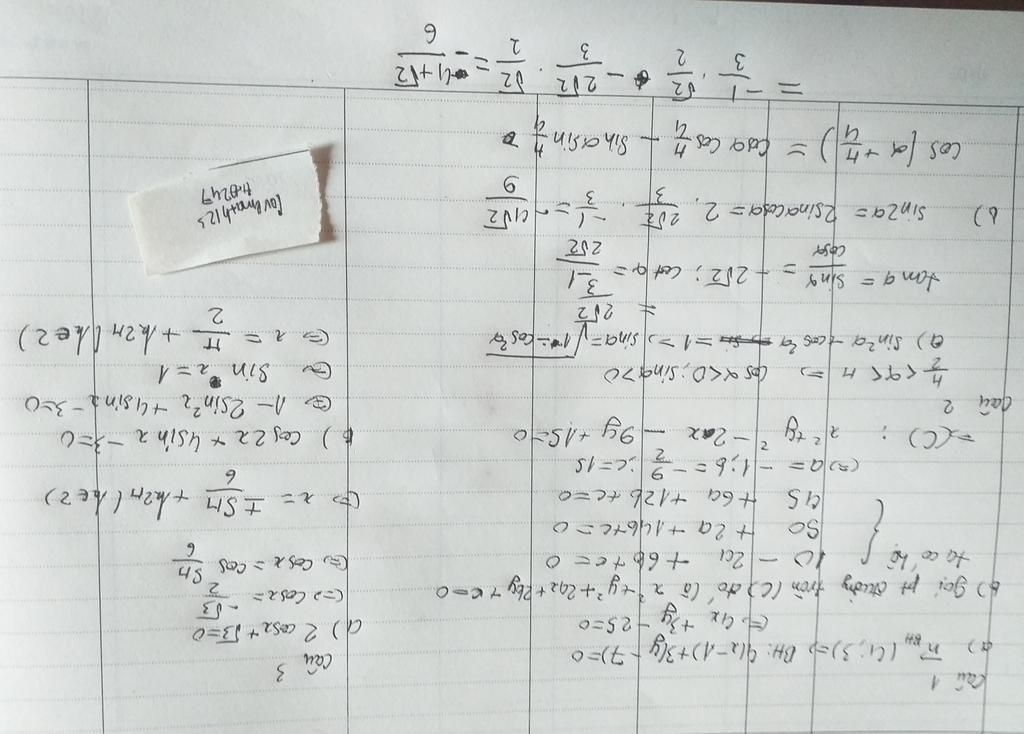 Câu 1
a) n⃗ BH (4; 3) => BH: 4(x-1)+3(y-7)=0
<=> 4x+3y-25=0
b) Gọi pt đường tròn (C) đó là x²+y²+2ax+2by+c=0
ta có hệ { 10 - 2a + 6b + c = 0
50 + 2a + 14b + c = 0
45 + 6a + 12b + c = 0
<=> a = -1; b = -9/2; c = 15
=> (C): x²+y²-2x-9y+15=0
Câu 2
π/2 < α < π => cosα<0; sinα>0
a) sin²α+cos²α=1 => sinα=√(1-cos²α)
= 2√2/3
tanα = sinα/cosα = -2√2; cotα = -1/2√2
b) sin2α = 2sinαcosα = 2.2√2/3.-1/3=-4√2/9
cos(α+π/4) = cosαcosπ/4 - sinαsinπ/4
= -1/3.√2/2 - 2√2/3.√2/2=-4+√2/6
Câu 3
a) 2cosx+√3=0
<=> cosx=-√3/2
<=> cosx=cos5π/6
<=> x=±5π/6+k2π(k∈Z)
b) cos2x+4sinx-3=0
<=> 1-2sin²x+4sinx-3=0
<=> sinx=1
<=> x=π/2+k2π(k∈Z)